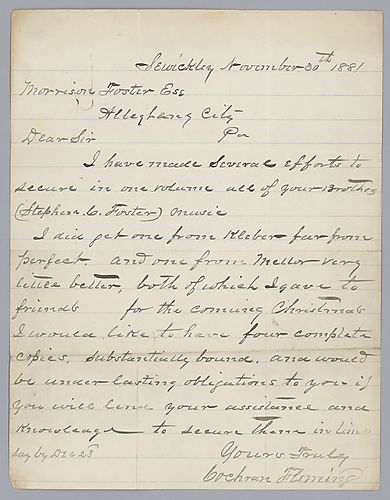 Sewickley November 30th 1881
Morrison Foster Esq
Allegheny City
Dear Sir Pa
I have made several efforts to
secure in one volume all of your Brothers
(Stephen C. Foster) music
I did get one from Kleber far from
perfect and one from Mellor very
little better, both of which I gave to
friends for the coming Christmas
I would like to have four complete
copies, substantially bound. and would
be under lasting obligations to you if
you will lend your assistance and
Knowledge to secure them in time
say by Dec 23
Yours Truly
Cochran Fleming